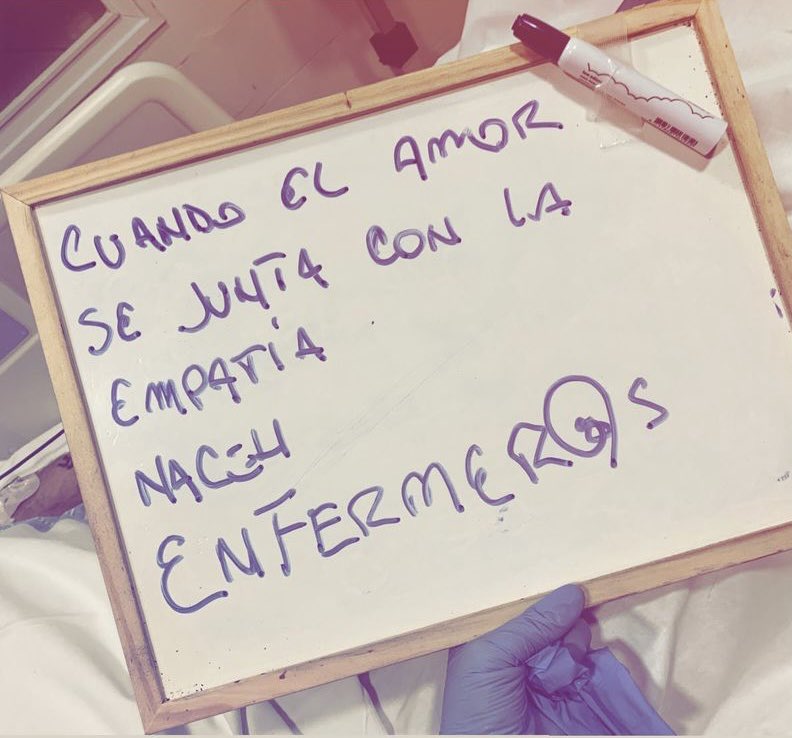 CUANDO EL AMOR
SE JUNTA CON LA
EMPATÍA
NACEN
ENFERMER@S